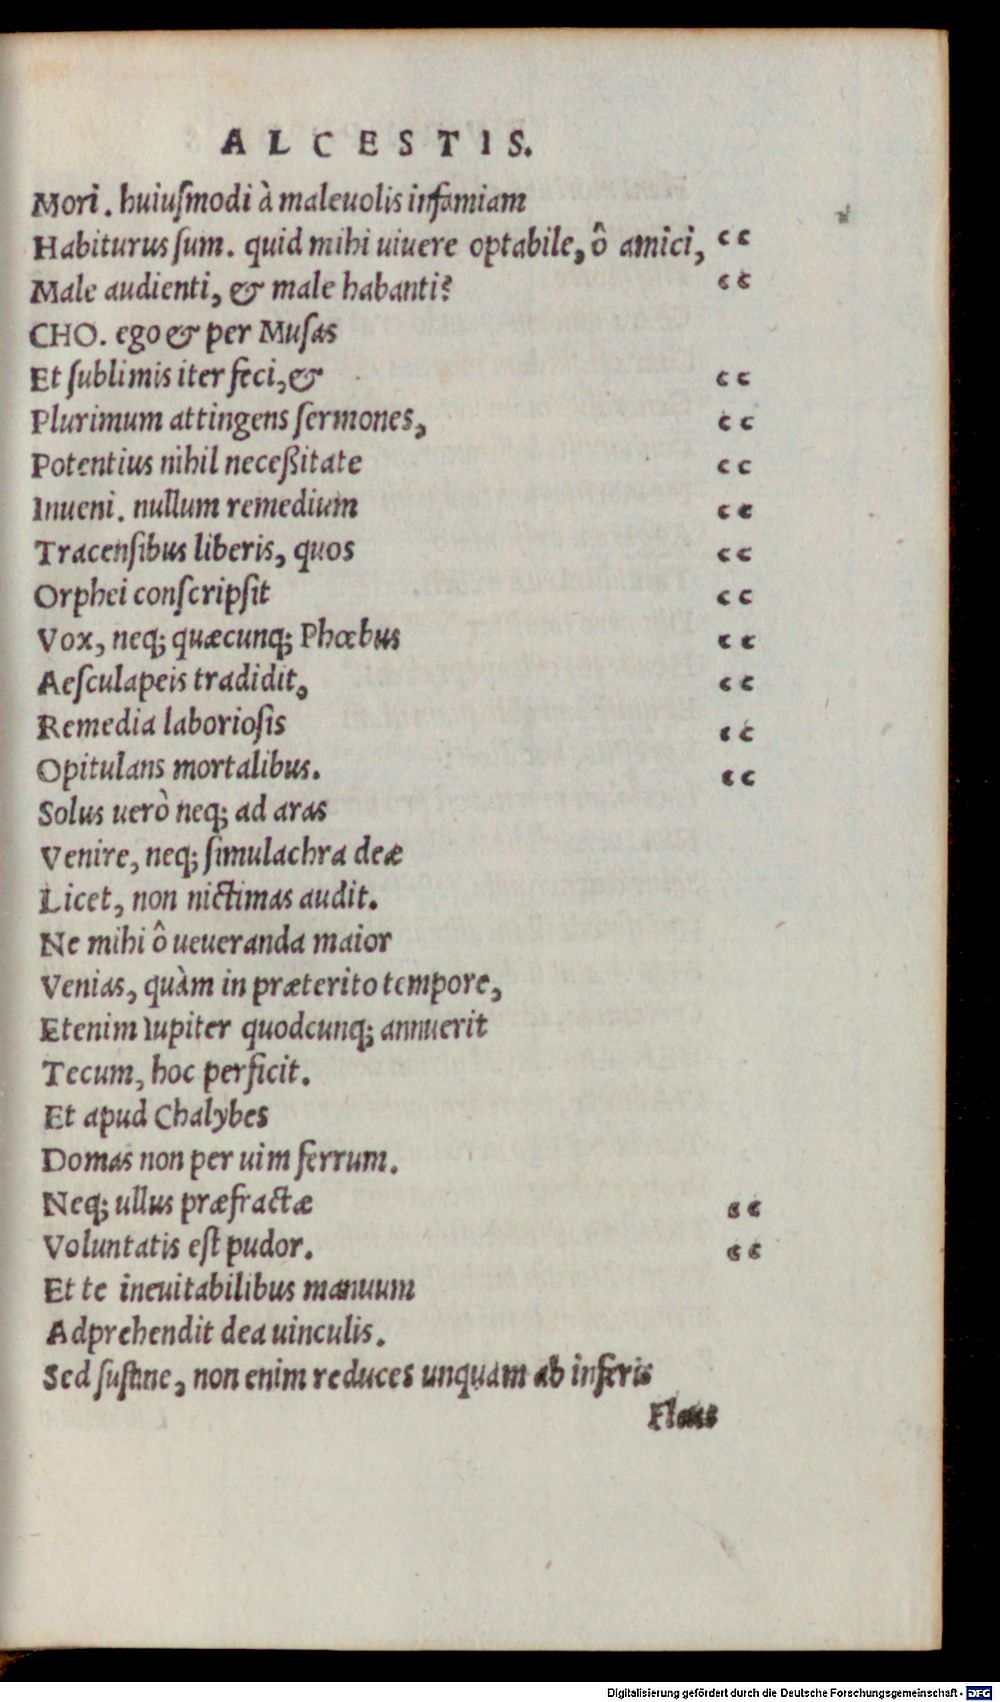 ALCESTIS.
Mori. huiuſmodi à maleuolis infamiam
Habiturus ſum. quid mihi uiuere optabile, ô amici, “
Male audienti, & male habanti? “
CHO. ego & per Muſas
Et ſublimis iter feci, & “
Plurimum attingens ſermones, “
Potentius nihil neceßitate “
Inueni. nullum remedium “
Tracenſibus liberis, quos “
Orphei conſcripſit “
Vox, neq; quæcunq; Phœbus “
Aeſculapeis tradidit, “
Remedia laborioſis “
Opitulans mortalibus. “
Solus uerò neq; ad aras
Venire, neq; ſimulachra deæ
Licet, non nictimas audit.
Ne mihi ô ueueranda maior
Venias, quàm in præterito tempore,
Etenim Iupiter quodcunq; annuerit
Tecum, hoc perficit.
Et apud Chalybes
Domas non per uim ferrum.
Neq; ullus præfractæ “
Voluntatis eſt pudor. “
Et te ineuitabilibus manuum
Adprehendit dea uinculis.
Sed ſuſtine, non enim reduces unquam ab inferis
Flens
Digitalisierung gefördert durch die Deutsche Forschungsgemeinschaft - DFG